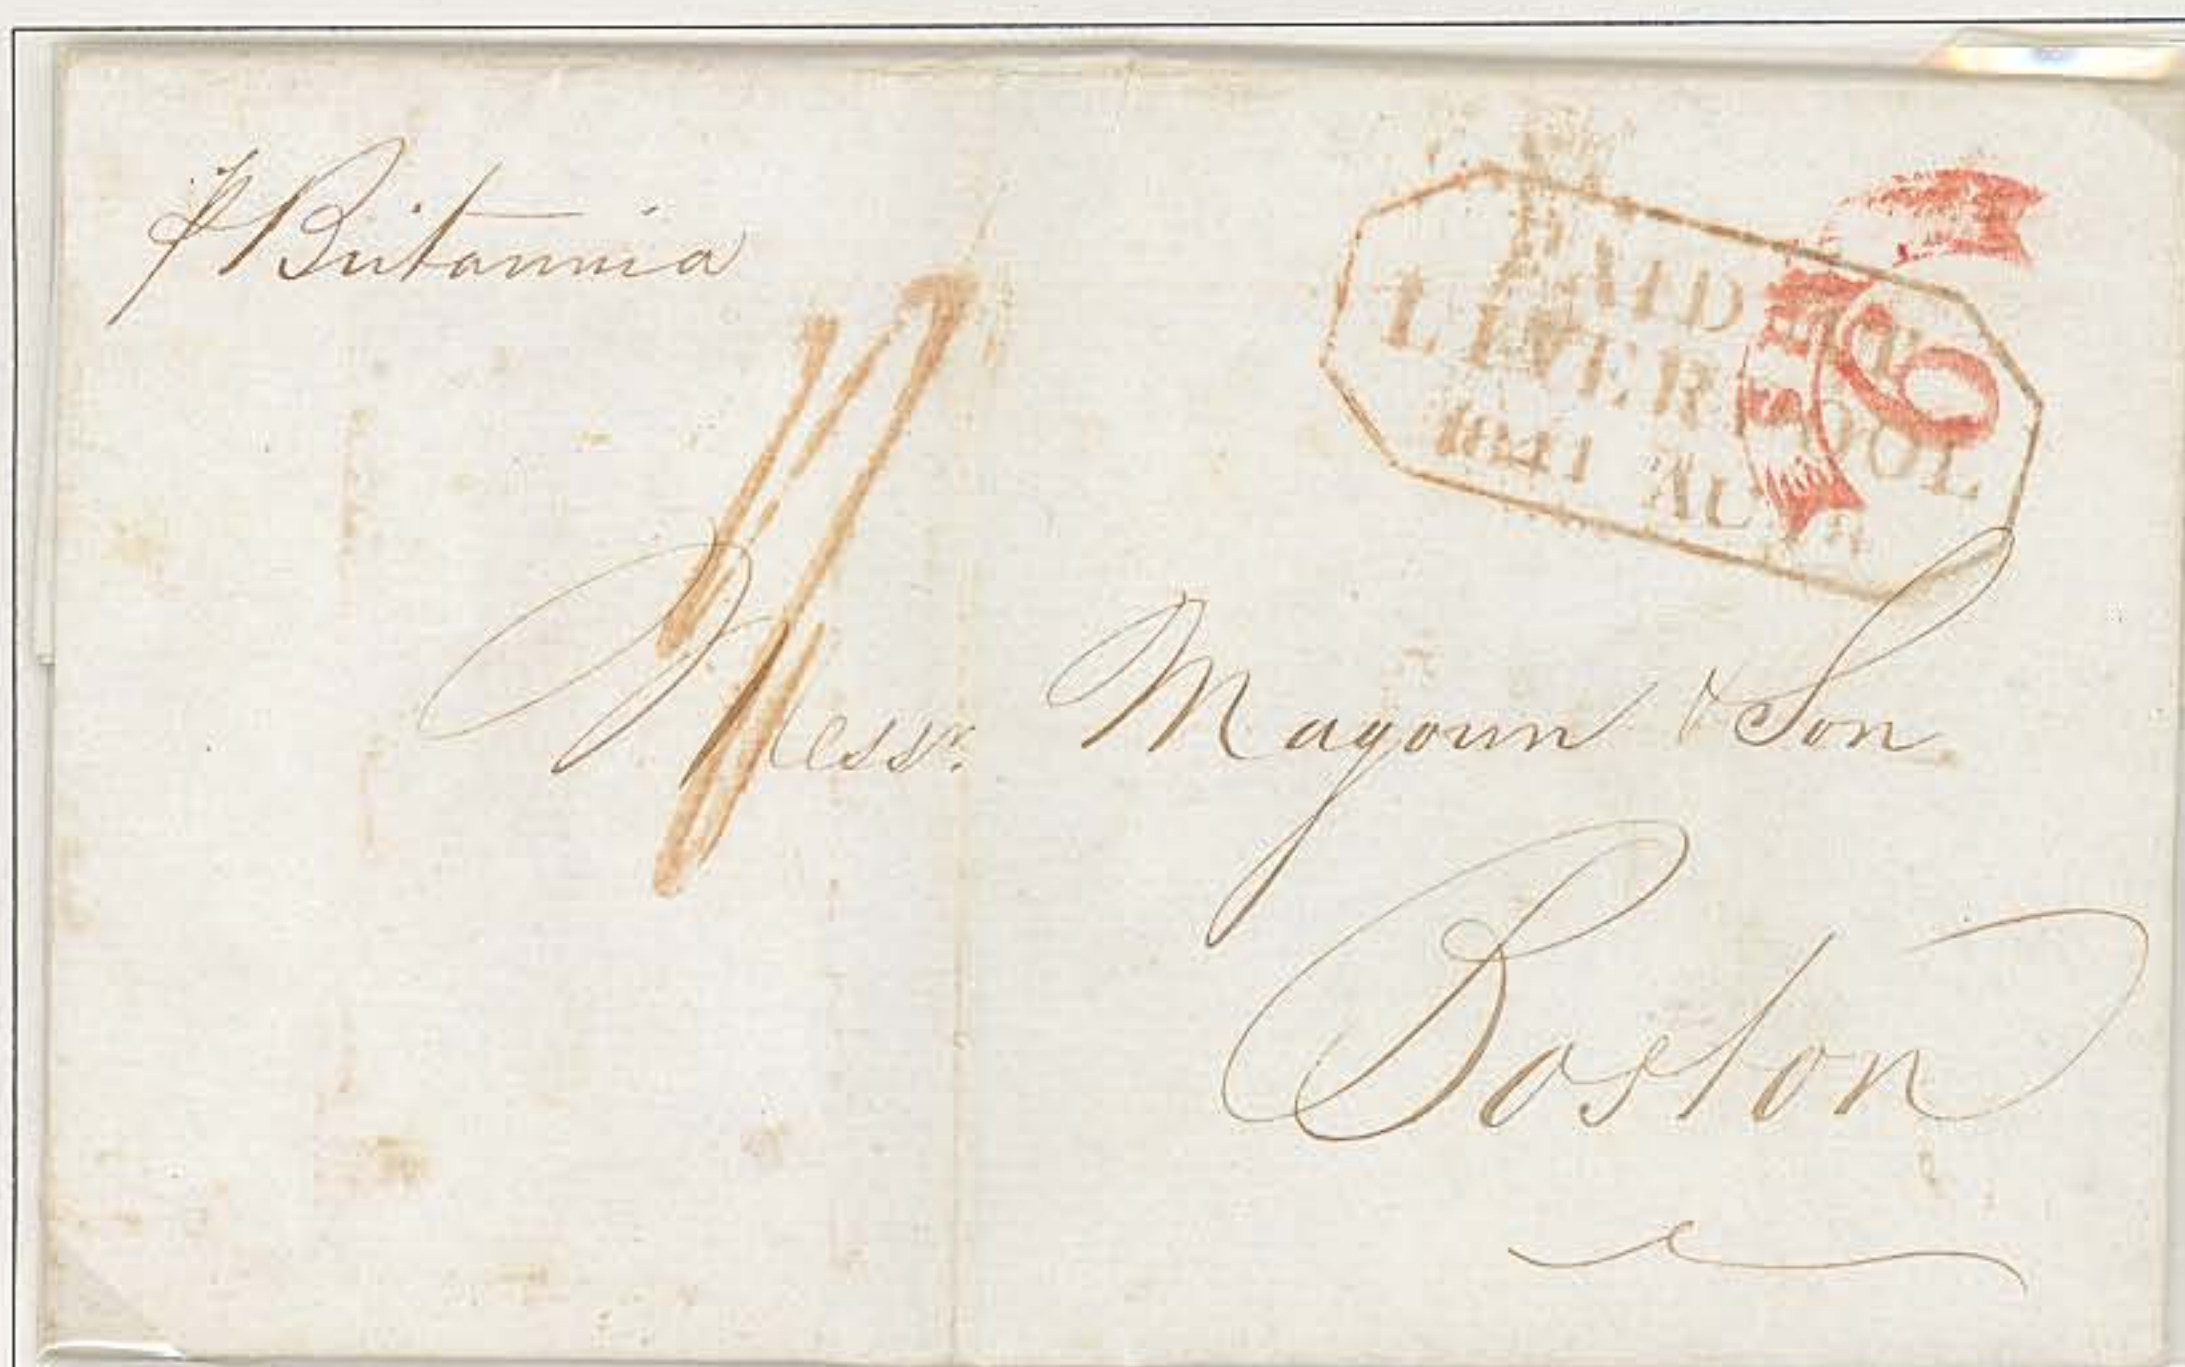 p Britannia
PAID AT
LIVERPOOL
1841 AU
SHIP
6
Messrs. Magoun & Son
Boston